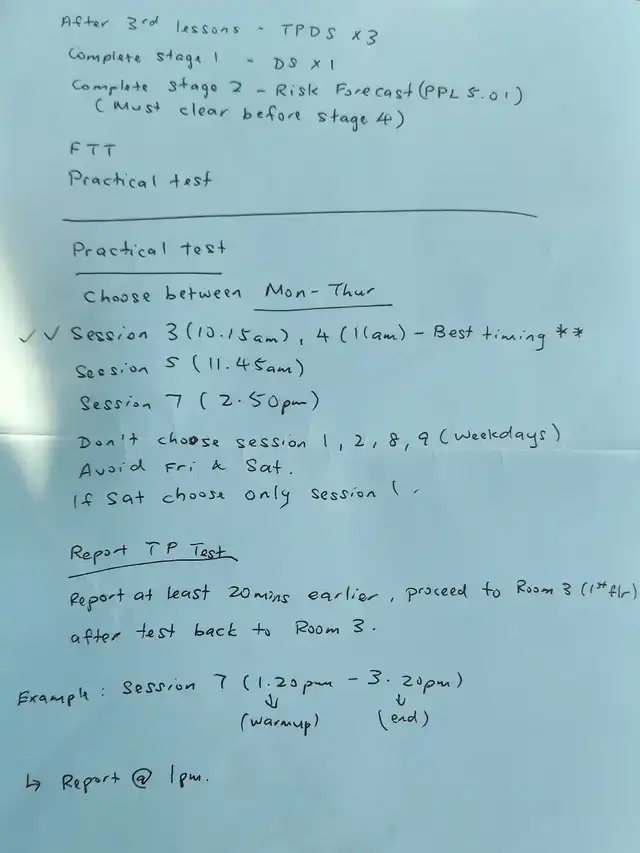 After 3rd lessons - TPDS x3
Complete stage 1 - DS x1
Complete stage 2 - Risk Forecast (PPL 5.01)
(Must clear before stage 4)
FTT
Practical test
Practical test
Choose between Mon-Thur
✓✓ Session 3 (10.15am), 4 (11am) - Best timing **
Session 5 (11.45am)
Session 7 (2.50pm)
Don't choose session 1, 2, 8, 9 (weekdays)
Avoid Fri & Sat.
If Sat choose only session 1.
Report TP Test
Report at least 20mins earlier, proceed to Room 3 (1st flr)
after test back to Room 3.
Example: Session 7 (1.20pm - 3.20pm)
↓ ↓
(warmup) (end)
↳ Report @ 1pm.